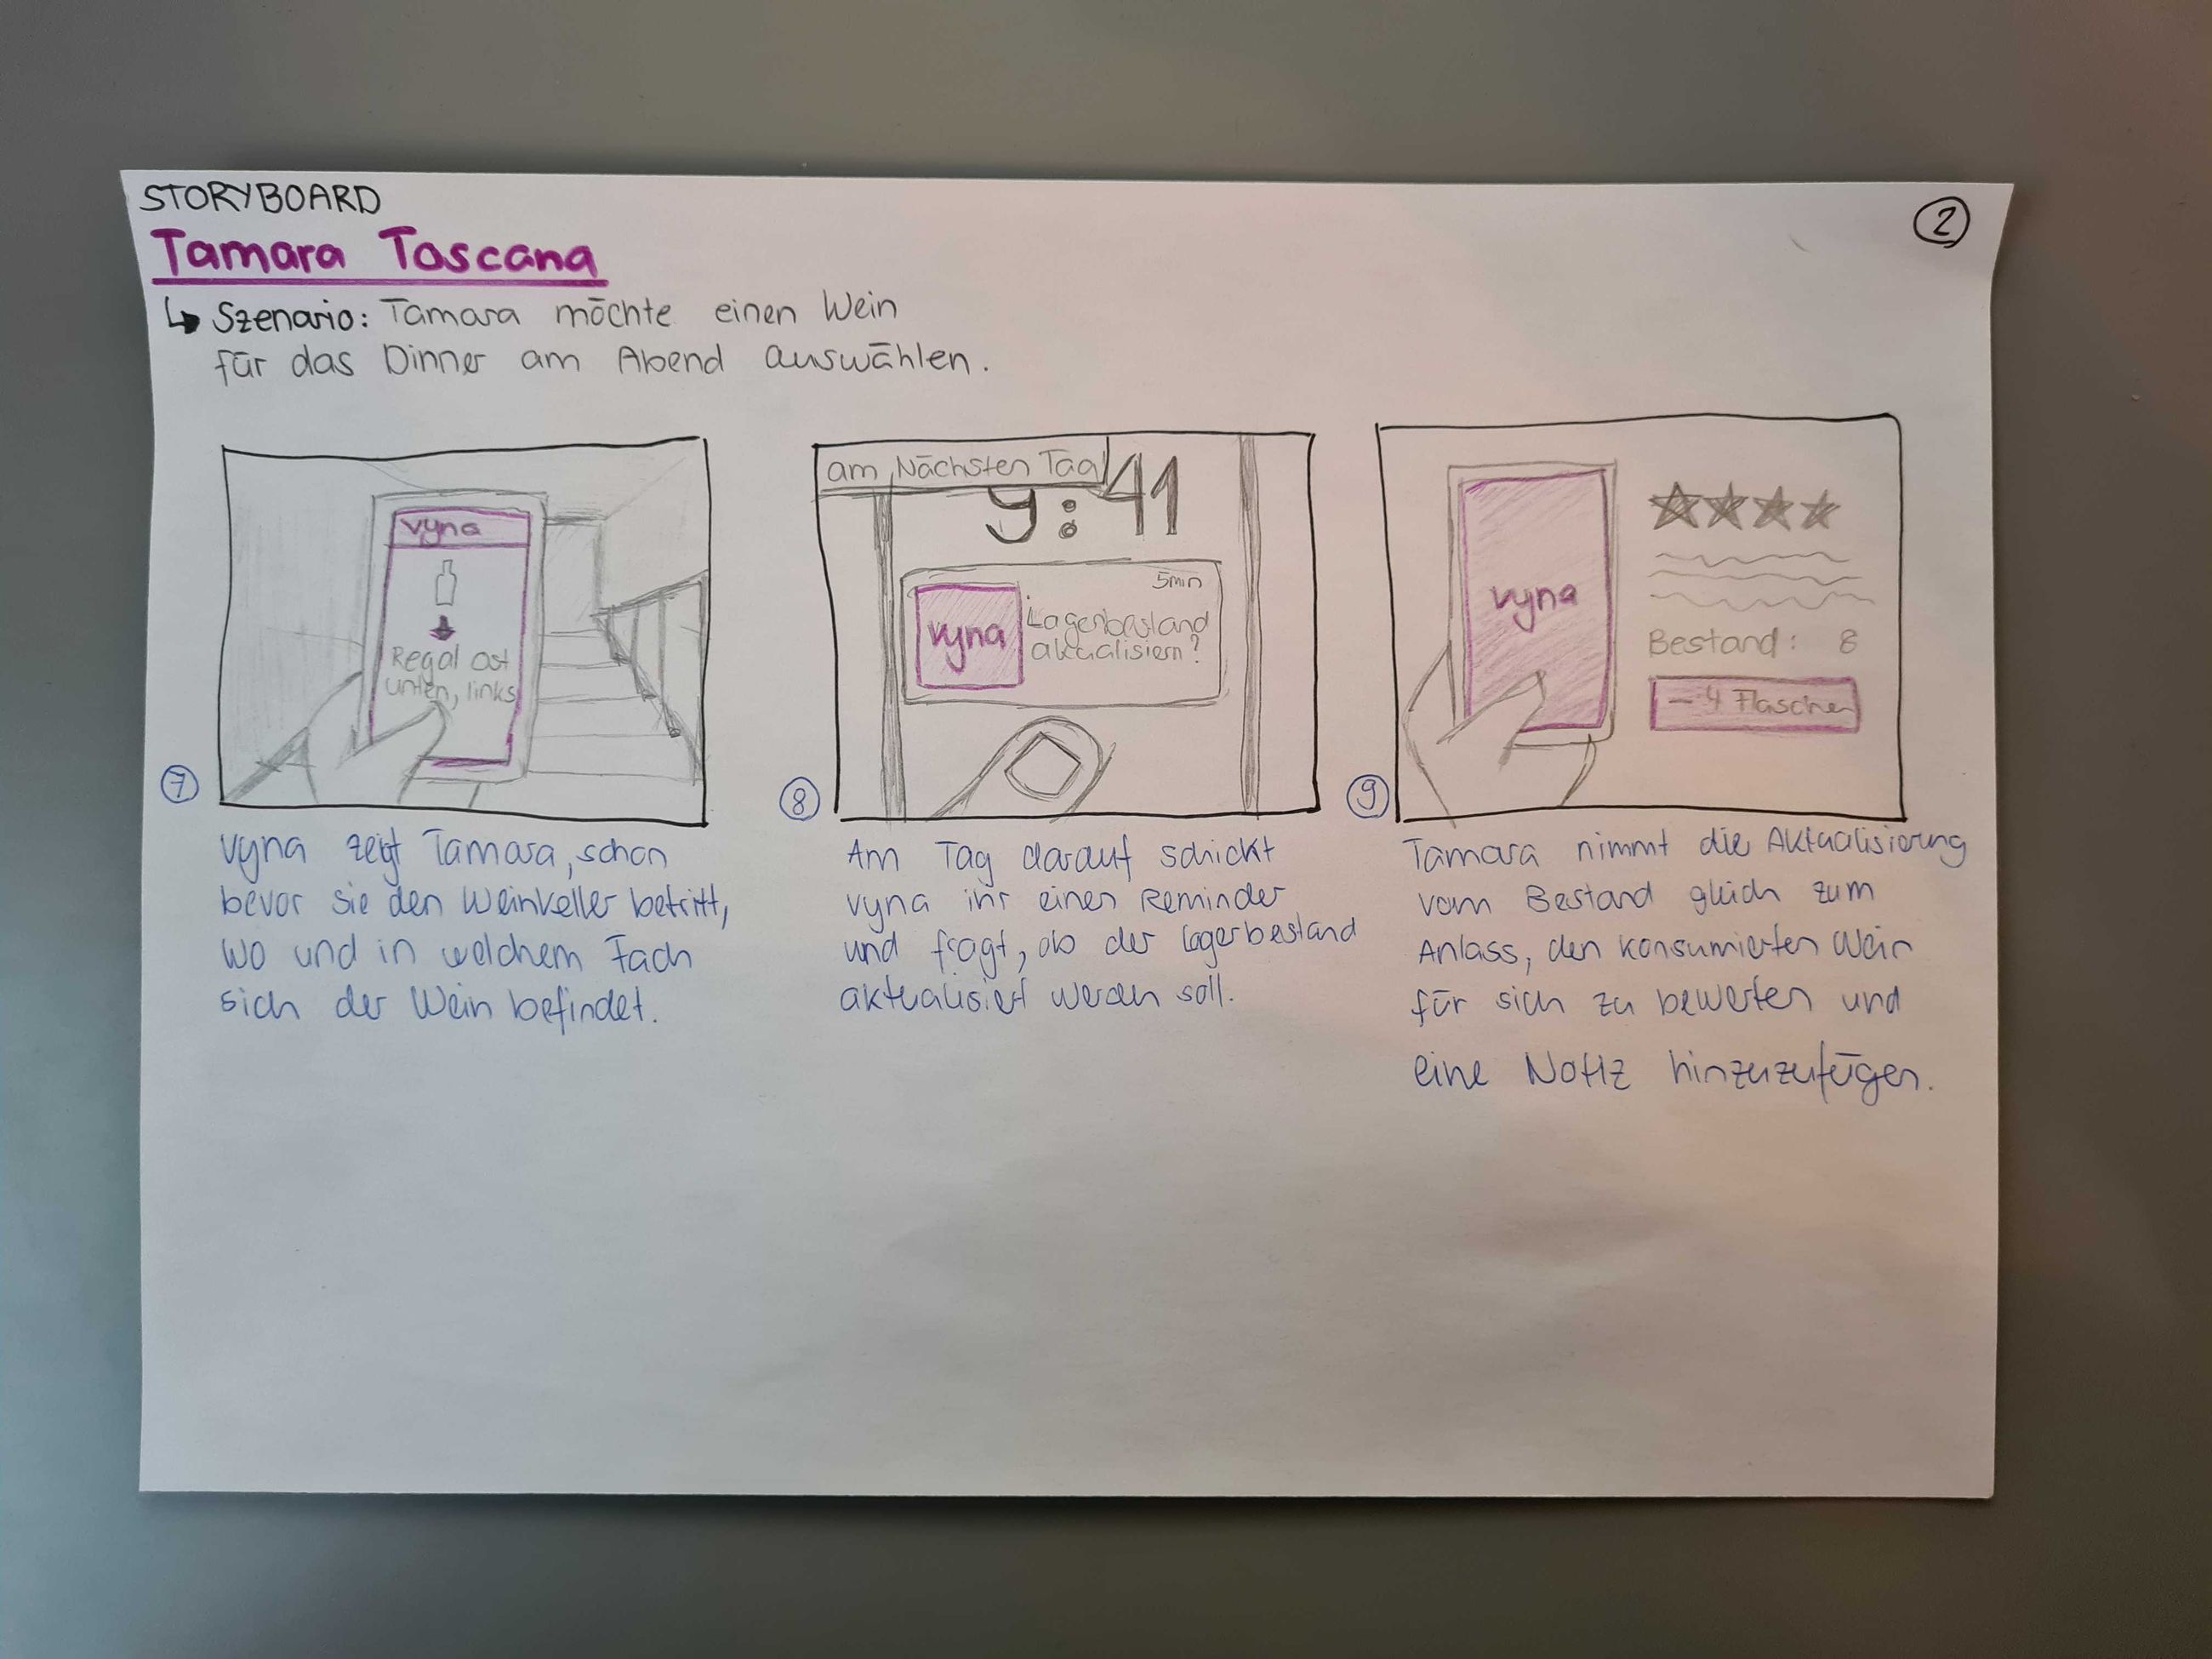 STORYBOARD
2
Tamara Toscana
↳ Szenario: Tamara möchte einen Wein
für das Dinner am Abend auswählen.
vyna
Regal ost
unten, links
7
vyna zeigt Tamara, schon
bevor sie den Weinkeller betritt,
wo und in welchem Fach
sich der Wein befindet.
am Nächsten Tag
9:41
5min
vyna
Lagerbestand
aktualisiern?
8
Am Tag darauf schickt
vyna ihr einen Reminder
und fragt, ob der Lagerbestand
aktualisiert werden soll.
vyna
Bestand: 8
- 4 Flaschen
9
Tamara nimmt die Aktualisierung
vom Bestand gleich zum
Anlass, den konsumierten Wein
für sich zu bewerten und
eine Notiz hinzuzufügen.